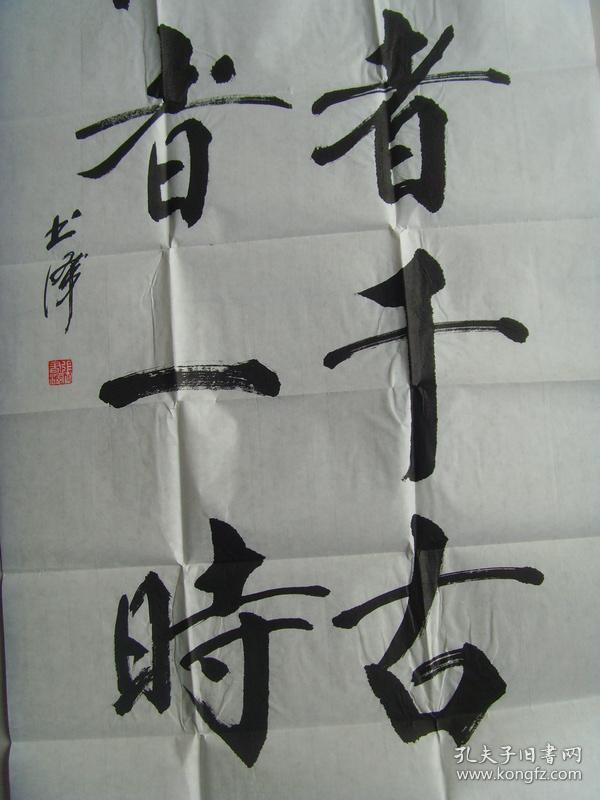 者千古
者一時
孔夫子旧書网
www.kongfz.com